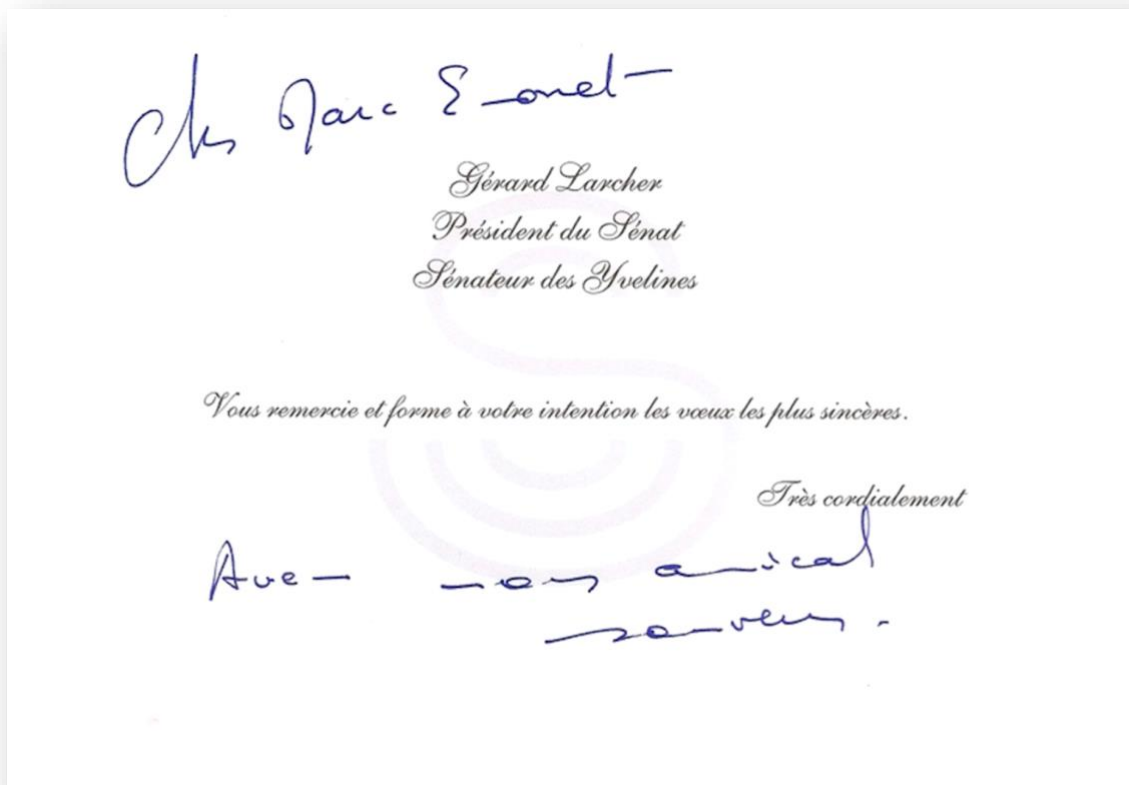 Cher Marc
Gérard Larcher
Président du Sénat
Sénateur des Yvelines
Vous remercie et forme à votre intention les vœux les plus sincères.
Très cordialement
Avec mon amical
souvenir.